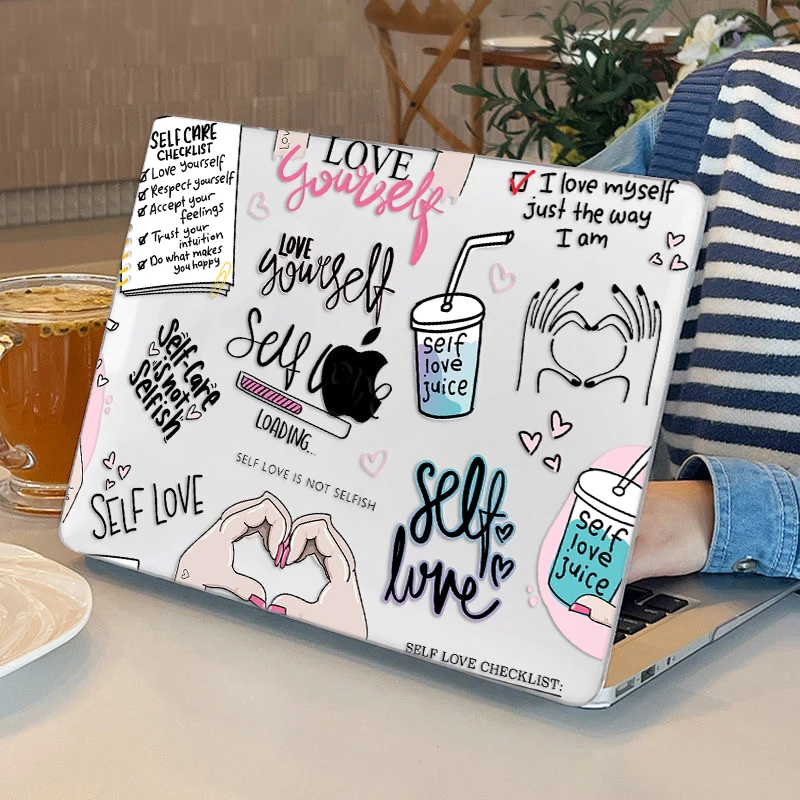 SELF CARE
CHECKLIST
Love yourself
Respect yourself
Accept your
feelings
Trust your
intuition
Do what makes
you happy
LOVE
LOVE
yourself
I love myself
just the way
I am
LOVE
yourself
Self love
LOADING...
self
love
juice
Self-Care
is not
selfish
SELF LOVE IS NOT SELFISH
SELF LOVE
self
love
self
love
juice
SELF LOVE CHECKLIST: